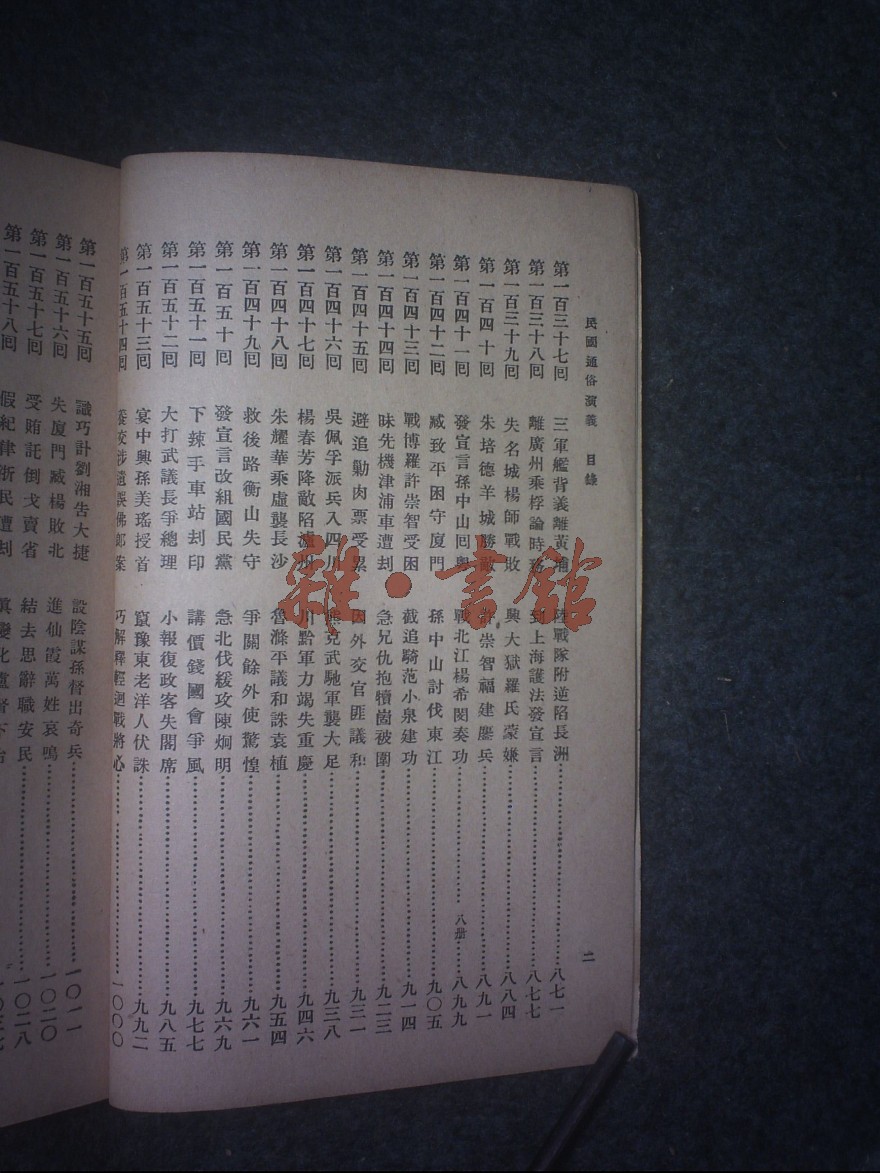 民國通俗演義 目錄 二
第一百三十七囘 三軍艦背義離黃埔 陸戰隊附逆陷長洲 八七一
第一百三十八囘 離廣州乘桴論時務 到上海護法發宣言 八七七
第一百三十九囘 失名城楊師戰敗 興大獄羅氏蒙嫌 八八四
第一百四十囘 朱培德羊城勝敵 許崇智福建鏖兵 八九一
第一百四十一囘 發宣言孫中山囘粵 戰北江楊希閔奏功 八册 八九九
第一百四十二囘 臧致平困守廈門 孫中山討伐東江 九〇五
第一百四十三囘 戰博羅許崇智受困 截追騎范小泉建功 九一四
第一百四十四囘 昧先機津浦車遭刦 急兄仇抱犢崮被圍 九二三
第一百四十五囘 避追勦肉票受累 因外交官匪議和 九三一
第一百四十六囘 吳佩孚派兵入四川 熊克武馳軍襲大足 九三八
第一百四十七囘 楊春芳降敵陷瀘州 川黔軍力竭失重慶 九四六
第一百四十八囘 朱耀華乘虛襲長沙 魯滌平議和誅袁植 九五四
第一百四十九囘 救後路衡山失守 爭關餘外使驚惶 九六一
第一百五十囘 發宣言改組國民黨 急北伐緩攻陳炯明 九六九
第一百五十一囘 下辣手車站刦印 講價錢國會爭風 九七七
第一百五十二囘 大打武議長爭總理 小報復政客失閣席 九八五
第一百五十三囘 宴中興孫美瑤授首 竄豫東老洋人伏誅 九九二
第一百五十四囘 養交涉遺誤佛郎案 巧解釋輕迴戰將心 一〇〇〇
第一百五十五囘 識巧計劉湘告大捷 設陰謀孫督出奇兵 一〇一一
第一百五十六囘 失廈門臧楊敗北 進仙霞萬姓哀鳴 一〇二〇
第一百五十七囘 受賄託倒戈賣省 結去思辭職安民 一〇二八
第一百五十八囘 假紀律浙民遭刦 眞變化盧督下台
雜·書館